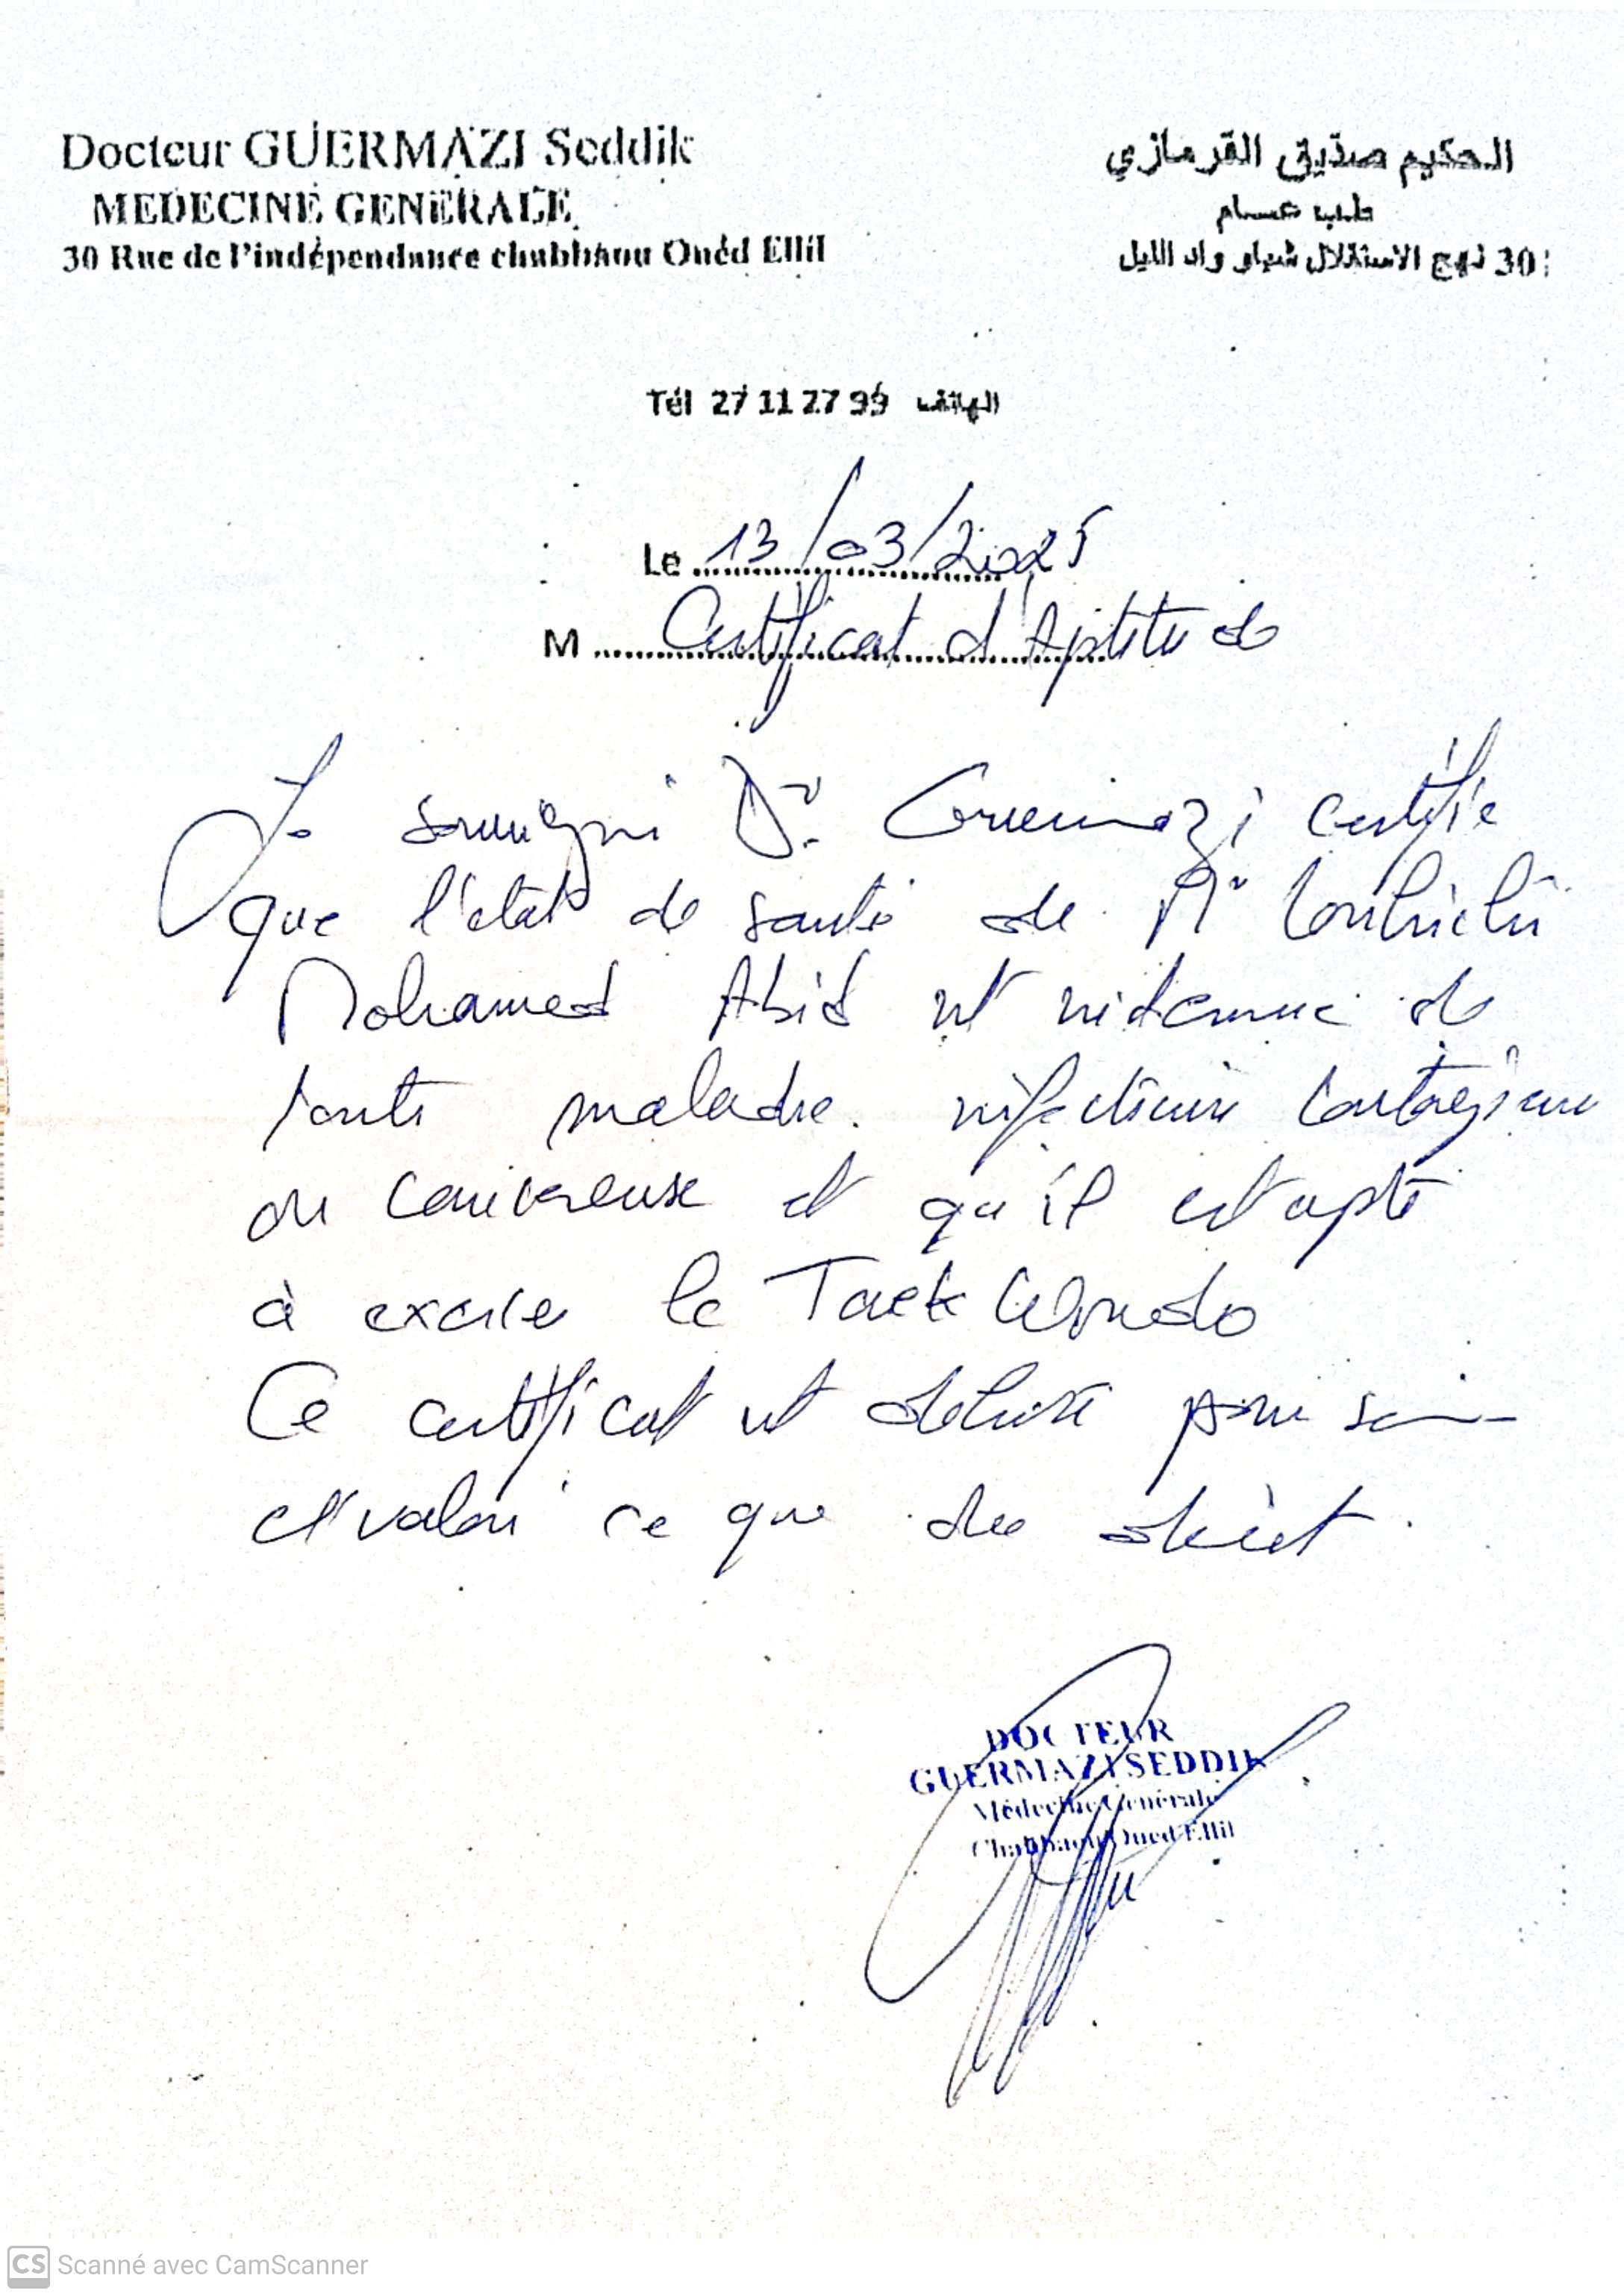 Docteur GUERMAZI Seddik
MEDECINE GENERALE
30 Rue de l'indépendance chabbaou Ouéd Ellil
الحكيم صديق القرمازي
طب عام
30 نهج الاستقلال شباو واد الليل
Tél 27 11 27 99 الهاتف
Le 13/03/2025
M Certificat d'Aptitude
Je soussigné Dr. Guermazi certifie
que l'état de santé de Mr
Mohamed Abid est indemne de
toute maladie infectieuse contagieuse
ou cancéreuse et qu'il est apte
à exercer le Taekwondo
Ce certificat est délivré pour servir
et valoir ce que de droit.
DOCTEUR
GUERMAZI SEDDIK
Médecine Générale
Chabbaou Oued Ellil
CS Scanné avec CamScanner